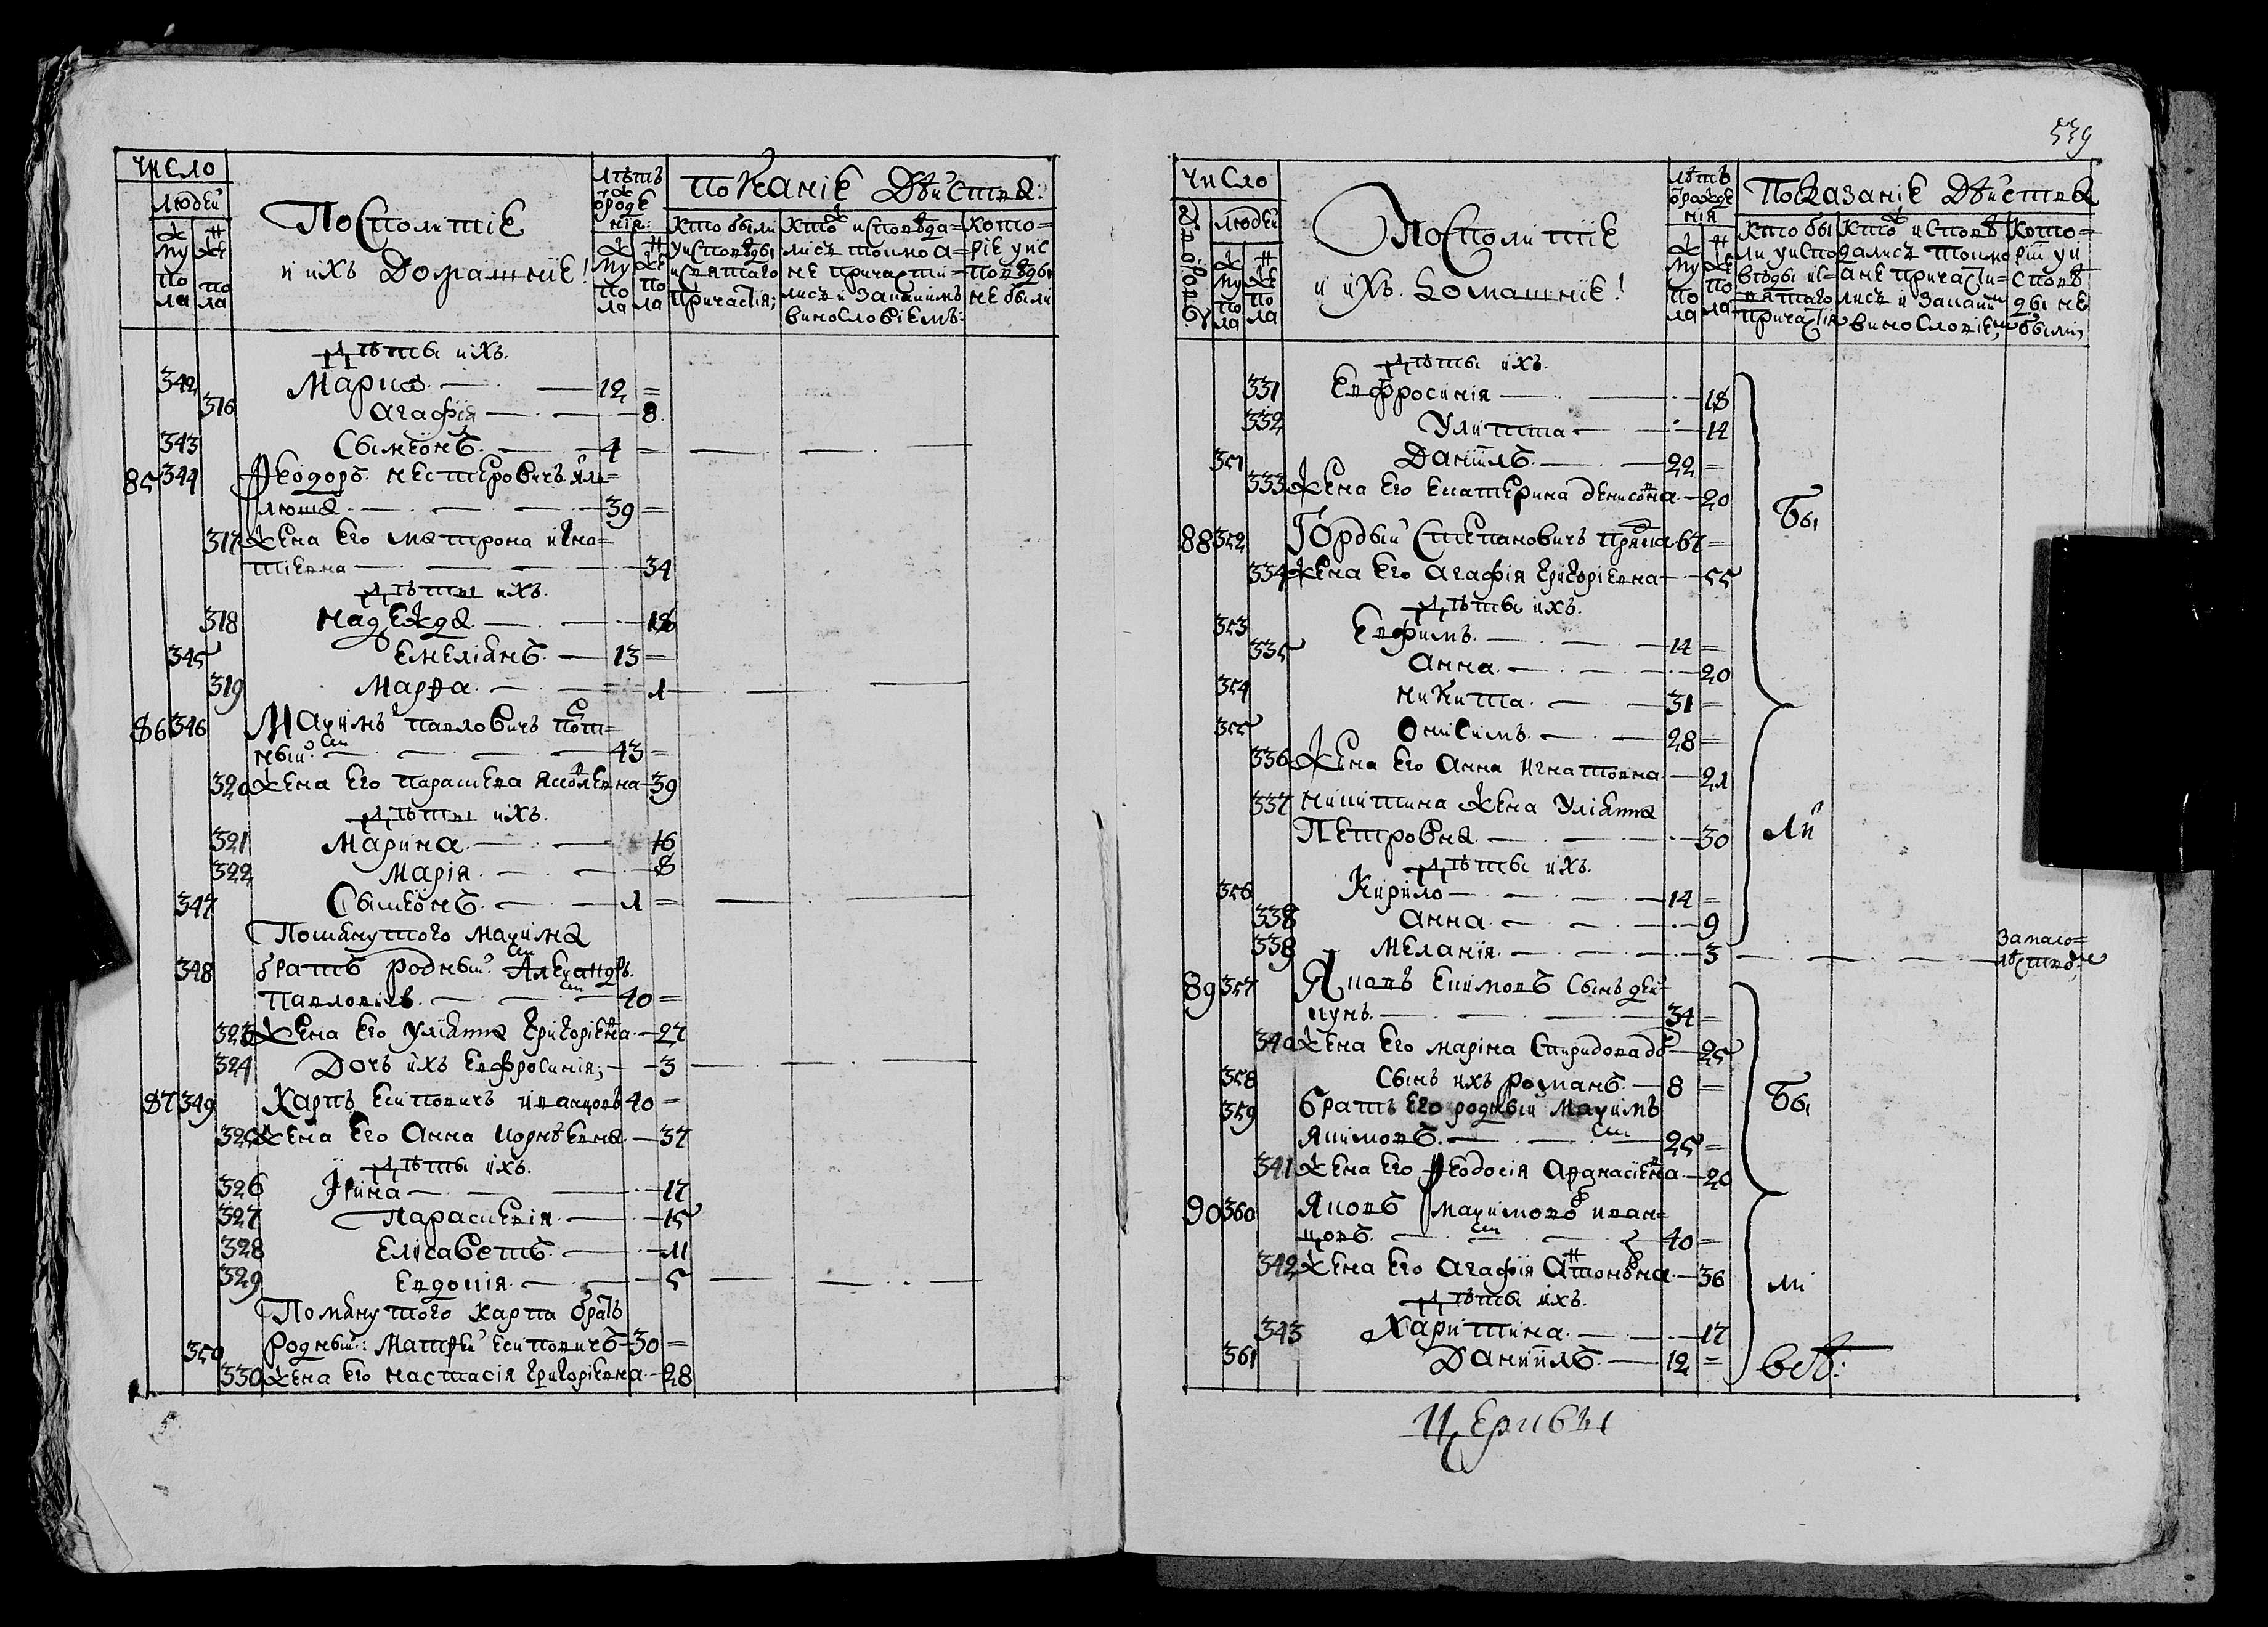 число
людей
муж пола
жен пола
Посполитіе
и ихъ Домашніе!
лѣтъ от рожденія:
муж пола
жен пола
показаніе Дѣйства:
Кто были у исповѣди и святаго Причастія;
Кто исповѣдались токмо а не причастились и за каимъ винословіемъ:
Которіе у исповѣди не были
дѣти ихъ.
342 Марко. 12 =
316 Агафія 8.
343 Сѵмеонъ. 4 =
85 344 Ѳеодоръ Нестеровичъ
39 =
317 Жена его Матрона Игна=
тіевна 34
дѣти ихъ.
318 Надежда. 18
345 Емеліанъ. 13 =
319 Марѳа. 1
86 346 Маѯимъ Павловичъ
43 =
320 Жена его Параскева Яковлевна 39
дѣти ихъ.
321 Марина. 16
322 Марія. 8
347 Сѵмеонъ. 1 =
Помянутого Маѯима
348 братъ родный Алеѯандръ
Павловичъ. 40 =
323 Жена его Уліанна Григоріевна. 27
324 Дочь ихъ Евфросинія; 3
87 349 Карпъ Есиповичъ Иванцовъ 40 =
325 Жена его Анна Корнѣевна. 37
дѣти ихъ.
326 Ірина 17
327 Параскевія. 15
328 Елісаветъ. 11
329 Евдокія. 5
Помянутого Карпа братъ
350 родный: Матѳей Есиповичъ 30 =
330 Жена его Настасія Григоріевна. 28
539
число
дворовъ
людей
муж пола
жен пола
Посполитіе
и ихъ Домашніе!
лѣтъ от рожденія
муж пола
жен пола
Показаніе Дѣйства
Кто были у исповѣди и святаго причастія
Кто исповѣдались токмо а не причастились и за каим винословіем;
Которіи у исповѣди не были;
дѣти ихъ.
331 Евфросинія 18
332 Улитта 14
351 Даніилъ. 22 =
333 Жена его Екатерина Денисовна. 20
88 352 Гордѣй Степановичъ 67 =
334 Жена его Агафія Григоріевна 55
дѣти ихъ.
353 Евфимъ. 14 =
335 Анна. 20
354 Никита. 31 =
355 Онисимъ. 28 =
336 Жена его Анна Игнатовна. 21
337 Никитина жена Уліанна
Петровна. 30
дѣти ихъ.
356 Кирило 14 =
338 Анна. 9
339 Меланія. 3
За мало=
лѣтствомъ
89 357 Яковъ Екимовъ сынъ
34 =
340 Жена его Маріна Спиридонова до 25
358 Сынъ ихъ Романъ. 8 =
359 братъ его родный Маѯимъ
Якимовъ. 25 =
341 Жена его Ѳеодосія Аѳанасіевна. 20
90 360 Яковъ Маѯимовъ Иван=
цовъ. 40 =
342 Жена его Агафія Антоновна. 36
дѣти ихъ.
343 Харитина. 17
361 Даніилъ. 12 =
Бы
ли
Бы
ли
всѣ:
Церквы